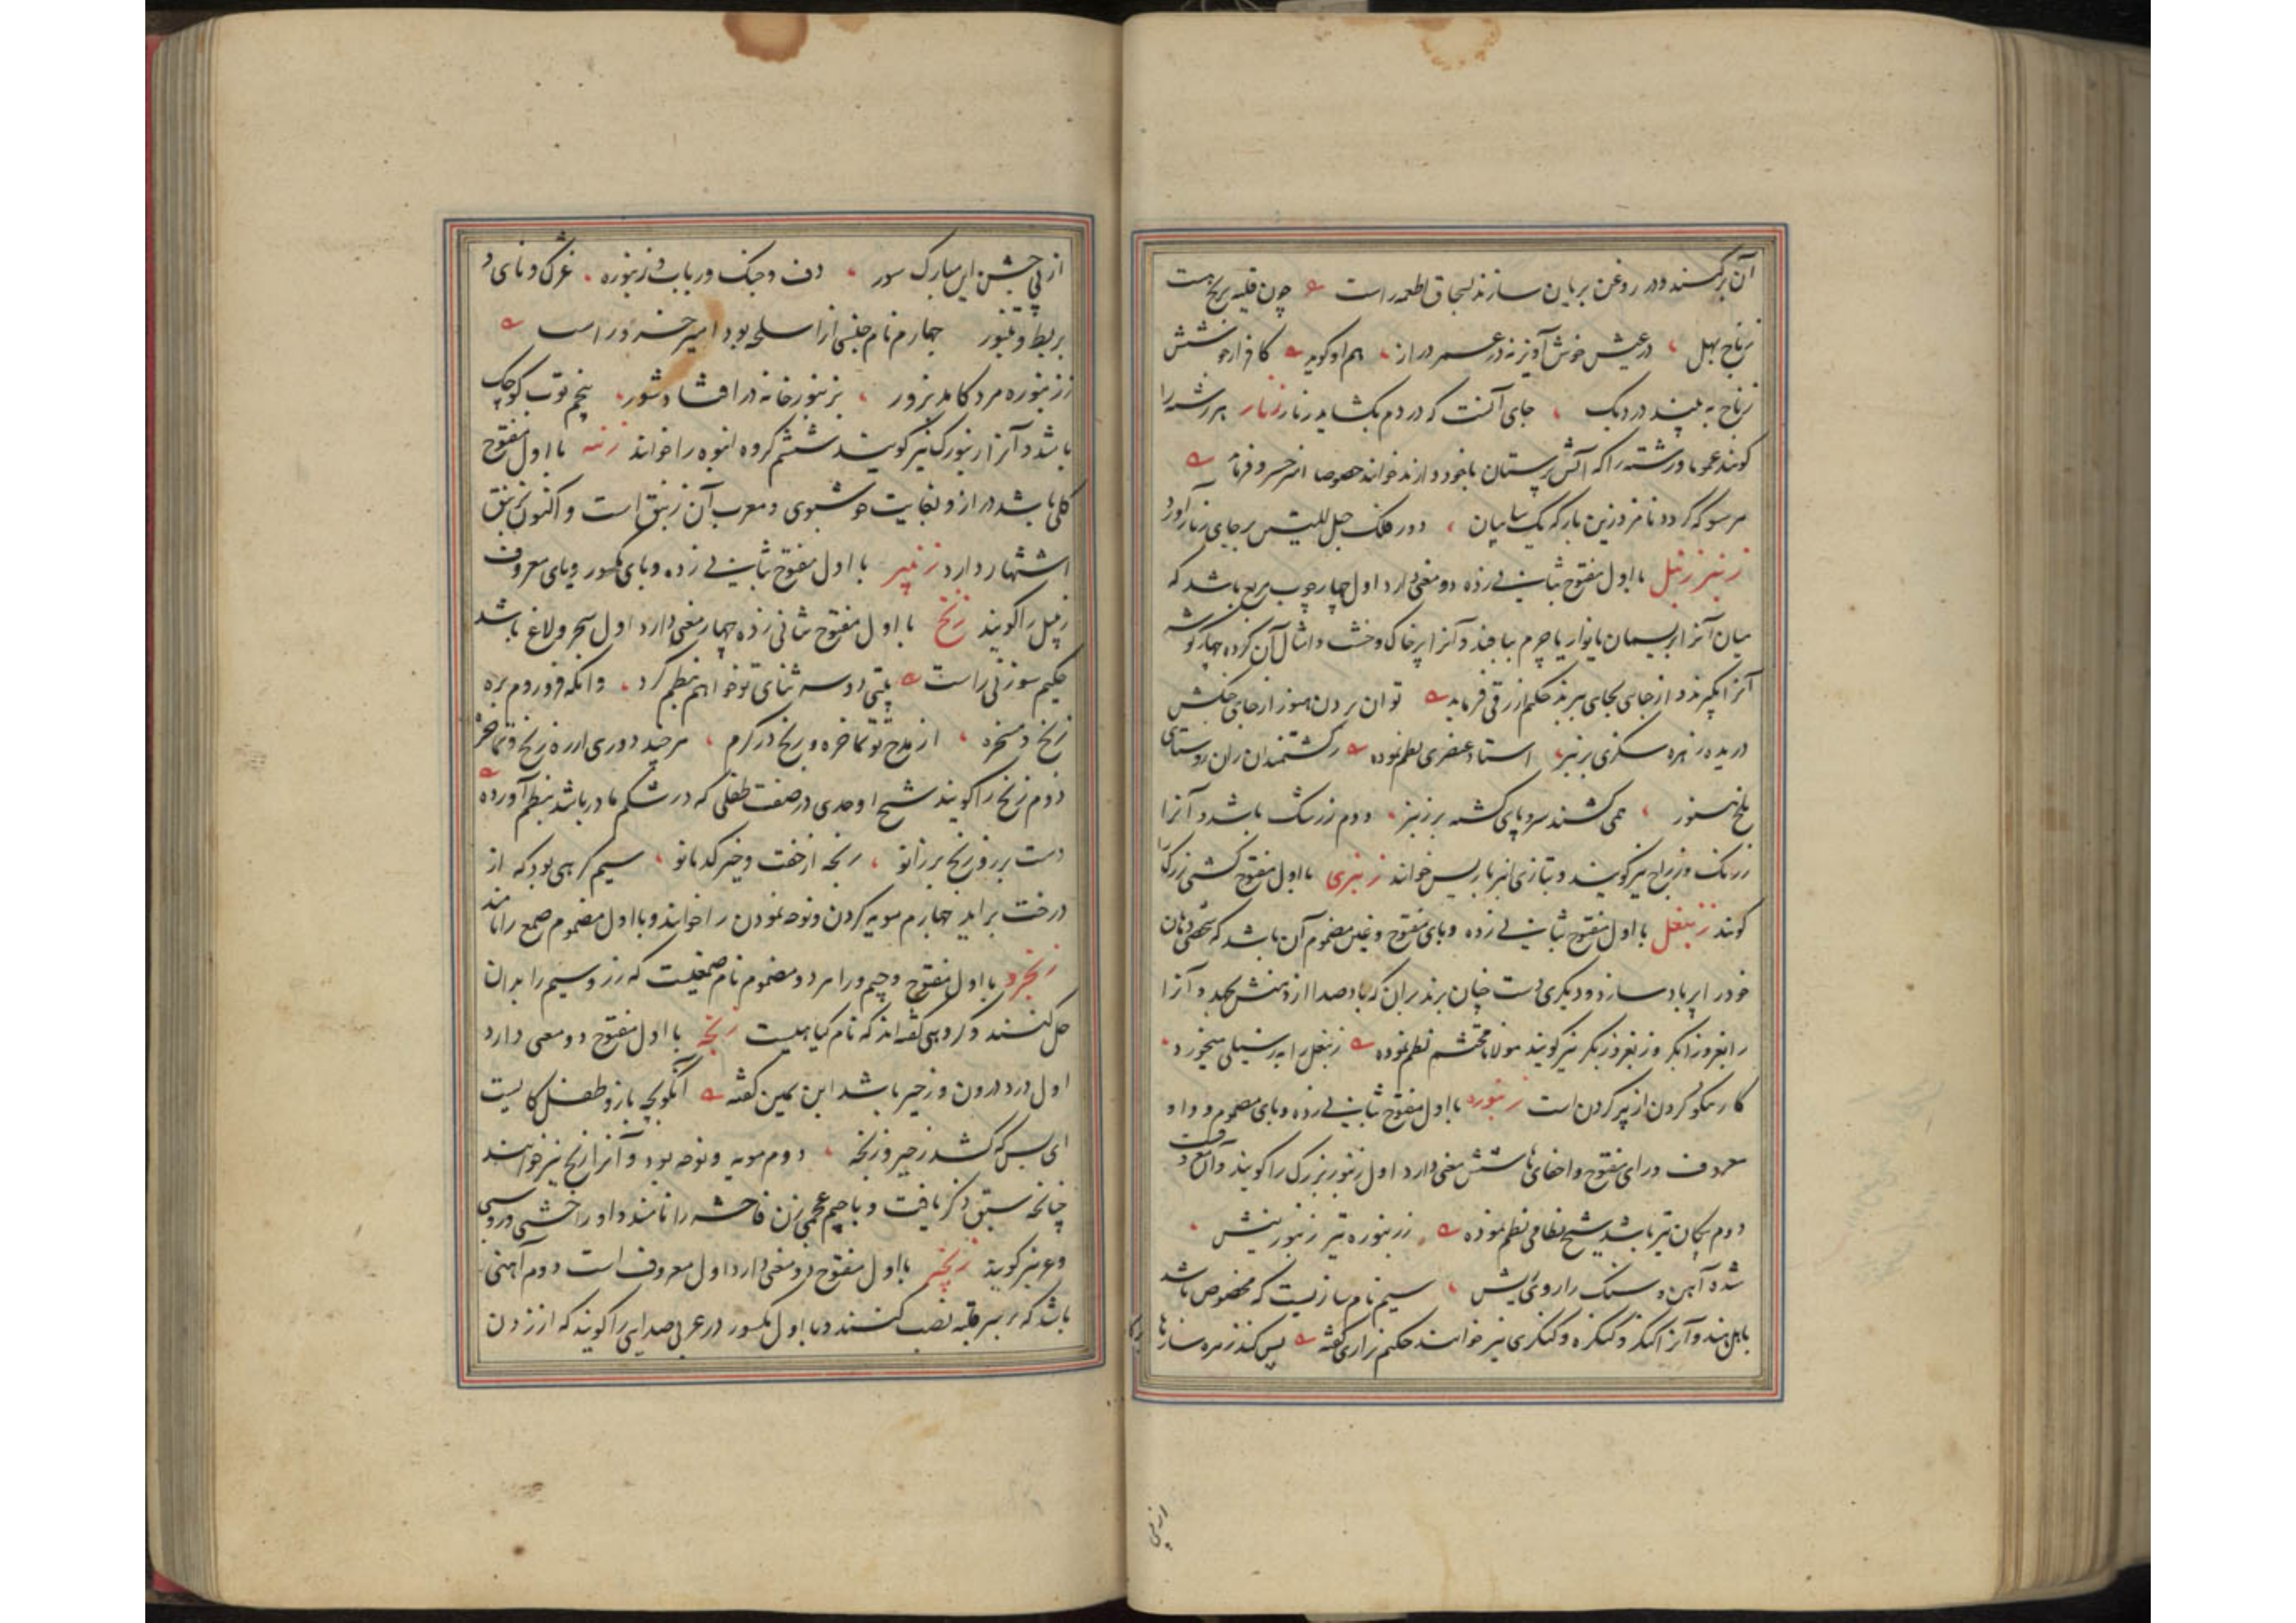 آن پرکنند و در روغن بریان سازند بسحاق اطعمه راست چون قلیه برنج هست
زناج بهل در عیش خوش آویز نه در عمر دراز هم او گوید کافر ار خوشش
زناج به بیند در دیک جای آنست که در دم بکشاید زنار زنار هر رشته را
کویند عموما و رشته را که آتش پرستان باخود دارند خوانند خصوصا امیر خسرو فرماید
هر سو که گردد نامزد زین بارکه یک سایبان دور فلک حبل اللیتس بر جای زنار آورد
زنبر زنبل با اول مفتوح بثانی زده دو معنی دارد اول چهار چوب مربع باشد که
میان آنرا بریسمان یا نوار یا چرم ببافند و آنرا پر خاک و خشت و امثال آن کرده چهار گوشه
آنرا بگیرند و از جایی بجایی برند حکیم ازرقی فرماید توان بردن هنوز از جای جنکش
دریده زهره سکزی بزنبر استاد عنصری نظم نموده ز کشتمندان زان روستای
بلخ هنوز همی کشند سر و پای کشته بر زنبر دوم زرشک باشد و آنرا
زرنک و زراج نیز کویند و بتازی انبرباریس خوانند زنبری با اول مفتوح کشتی بزرک را
کویند زنبغل با اول مفتوح بثانی زده و بای مفتوح و غین مضموم آن باشد که شخصی دهان
خود را پر باد سازد و دیکری دست چنان برند بران که باد صدا از دهنش بجهد و آنرا
زابغر و زابکر و زنبغر و زنبکر نیز کویند مولانا محتشم نظم نموده زنبغل را به ز سیلی میخورد
کار نیکو کردن از پر کردن است زنبوره با اول مفتوح بثانی زده و بای مضموم و واو
معروف و رای مفتوح و اخفای ها شش معنی دارد اول زنبور بزرک را کویند و آن معروفست
دوم پیکان تیر باشد شیخ نظامی نظم نموده ز زنبوره تیر زنبور نیش
شده آهن و سنک را روی ریش سیم نام سازیست که مخصوص باشد
باهل هند و آنرا کنکر و کنکره و کنکری نیز خوانند حکیم نزاری گفته پس کند زهره سازها
از پی
از پی جشن این مبارک سور دف و چنک و رباب و زنبوره غژک و نای و
بربط و طنبور چهارم نام جنسی از اسلحه بود امیر خسرو راست
ز زنبوره مرد کامد بزور بزنبور خانه در افتاد شور پنجم توپ کوچک
باشد و آنرا زنبورک نیز کویند ششم کروه انبوه را خوانند زنبه با اول مفتوح
گلی باشد دراز و بغایت خوشبوی و معرب آن زنبق است و اکنون بزنبق
اشتهار دارد زنبیر با اول مفتوح بثانی زده و بای مکسور و یای معروف
زنبیل را کویند زنج با اول مفتوح بثانی زده چهار معنی دارد اول سخر و لاغ باشد
حکیم سوزنی راست بیتی دو سه ثنای تو خواهیم نظم کرد وانکه فرو روم بره
زنج و مسخره از مدح تو تماخره و زنج در کرم هر چند دوری از ره زنج و تماخره
دوم زنخ را کویند شیخ اوحدی در صفت طفلی که در شکم مادر باشد بنظم آورده
دست بر رو زنج بر زانو رنجه از خفت و خیز کدبانو سیم گریهی بود که از
درخت برآید چهارم مویه کردن و نوحه نمودن را خوانند و با اول مضموم صمغ را نامند
زنجرد با اول مفتوح و جیم و را هر دو مضموم نام صمغیست که زر و سیم را بدان
حل کنند و کروهی کفته اند که نام کیاهیست زنجه با اول مفتوح دو معنی دارد
اول درد درون و زحیر باشد ابن یمین کفته آنکو بچه بازو طفل کانیست
ای بس که کشد زحیر و زنجه دوم مویه و نوحه بود و آنرا زنج نیز خوانند
چنانچه سبق ذکر یافت و با جیم عجمی زن فاحشه را نامند و او را خشنی و روسپی
و غر نیز کویند زنجیر با اول مفتوح دو معنی دارد اول معروف است دوم آهنی
باشد که بر سر قلبه نصب کنند و با اول مکسور در عربی صدایی را کویند که از زدن